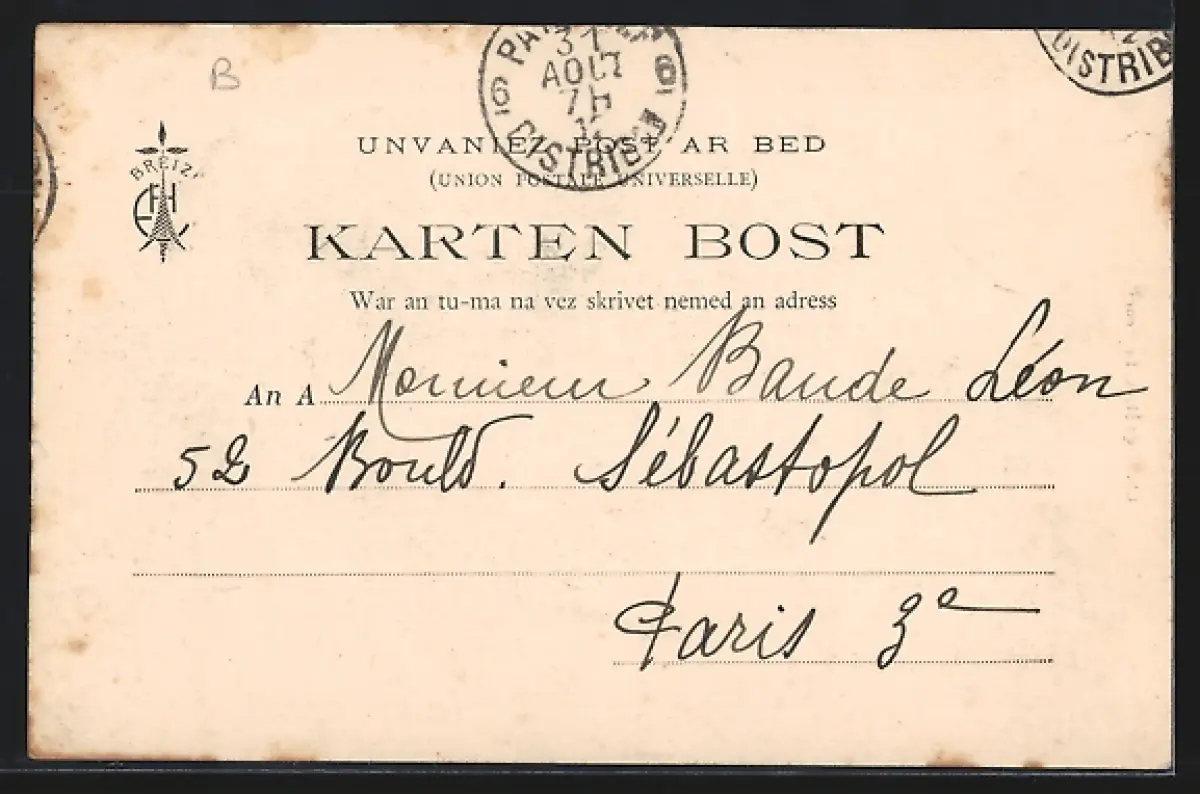 B
31
AOUT
7H
DISTRIB
DISTRIB
BREIZH
UNVANIEZ POST AR BED
(UNION POSTALE UNIVERSELLE)
KARTEN BOST
War an tu-ma na vez skrivet nemed an adress
An A Monsieur Baude Léon
52 Bould. Sébastopol
Paris 3e